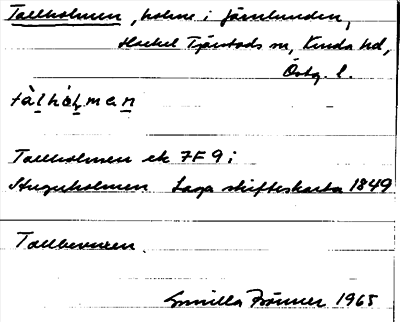 Tallholmen, holme i Järnlunden,
Hackel Tjärstads sn, Kinda hd,
Östg. l.
tàlhólman
Tallholmen ek 7F9 i
Stuguholmen Laga skifteskarta 1849
Tallbevuxen.
Gunilla Brönner 1965